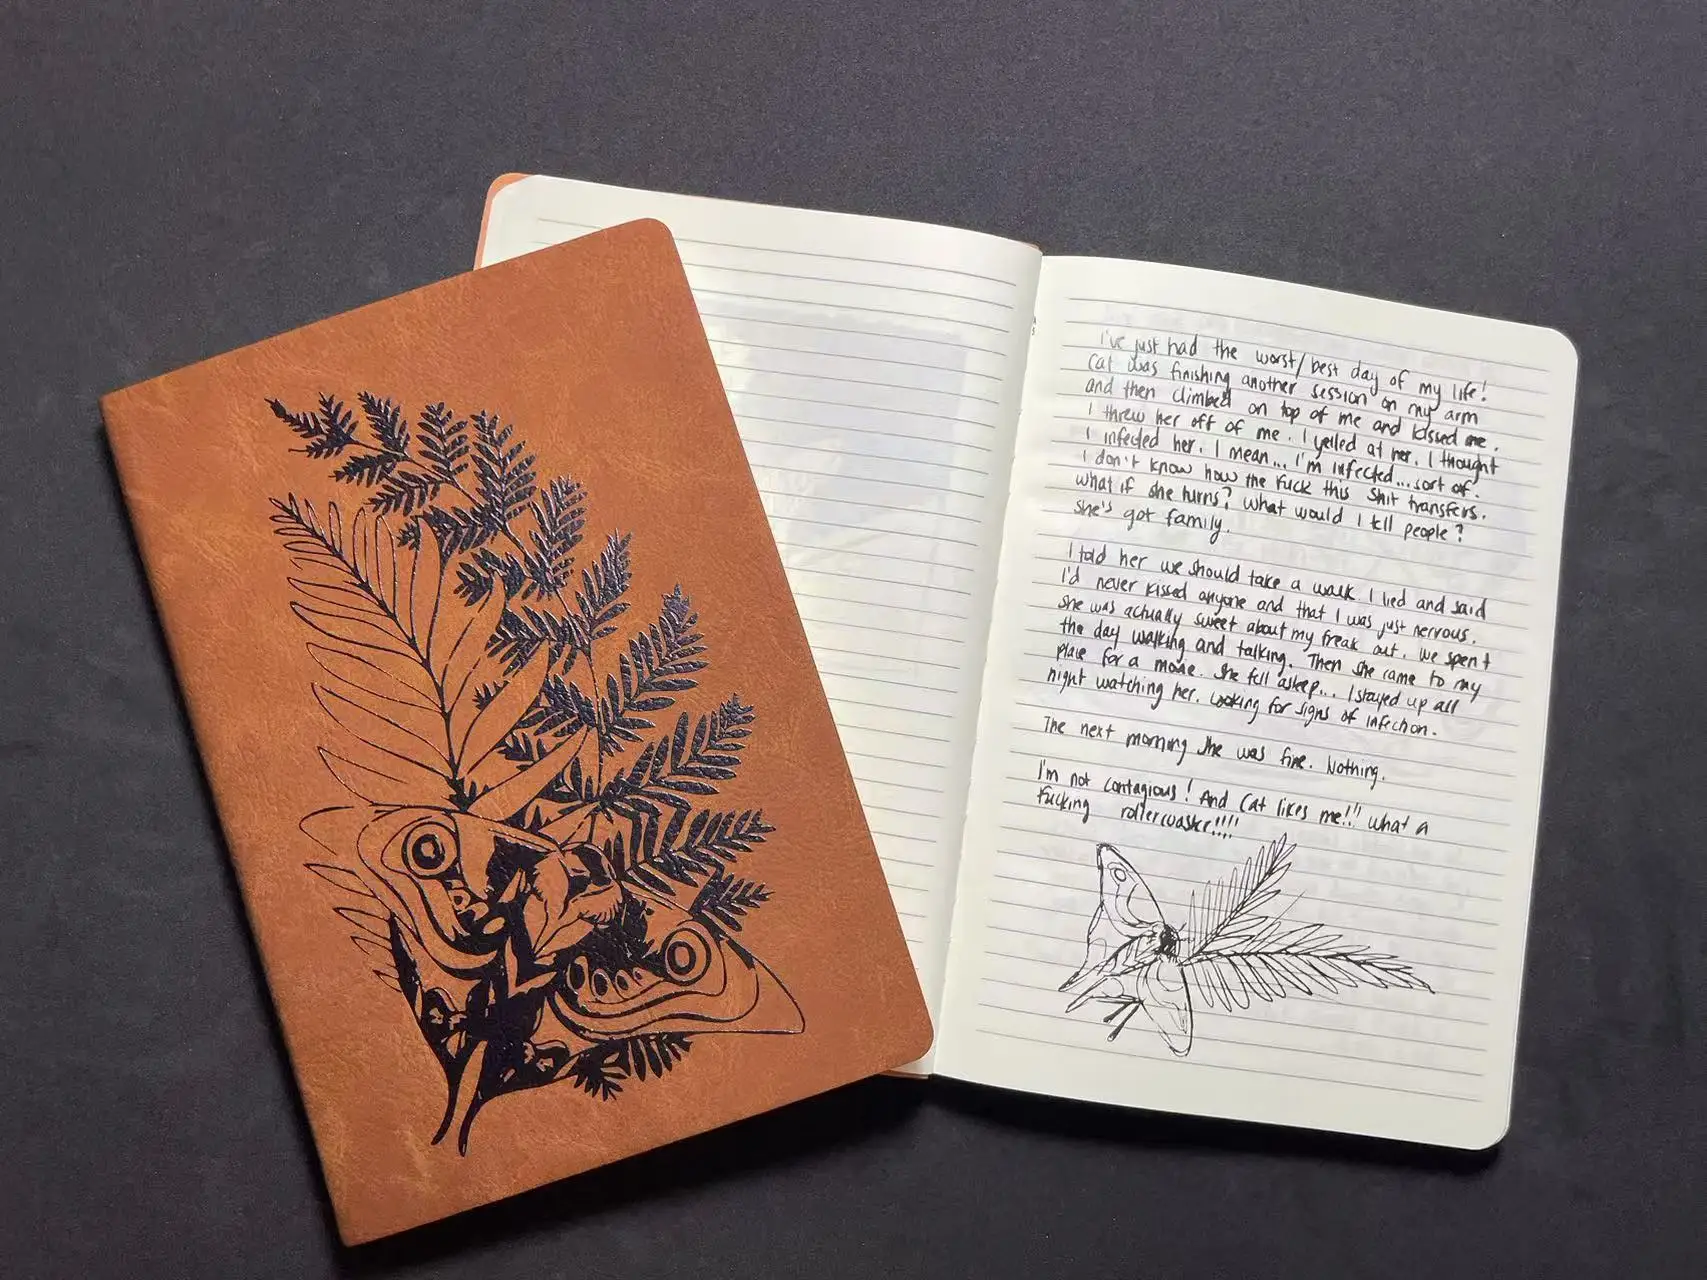 I've just had the worst/best day of my life!
Cat was finishing another session on my arm
and then climbed on top of me and kissed me.
I threw her off of me. I yelled at her. I thought
I infected her. I mean... I'm infected... sort of.
I don't know how the fuck this shit transfers.
What if she turns? What would I tell people?
She's got family.
I told her we should take a walk. I lied and said
I'd never kissed anyone and that I was just nervous.
She was actually sweet about my freak out. We spent
the day walking and talking. Then she came to my
place for a movie. She fell asleep... I stayed up all
night watching her. Looking for signs of infection.
The next morning she was fine. Nothing.
I'm not contagious! And Cat likes me!!! What a
fucking rollercoaster!!!!